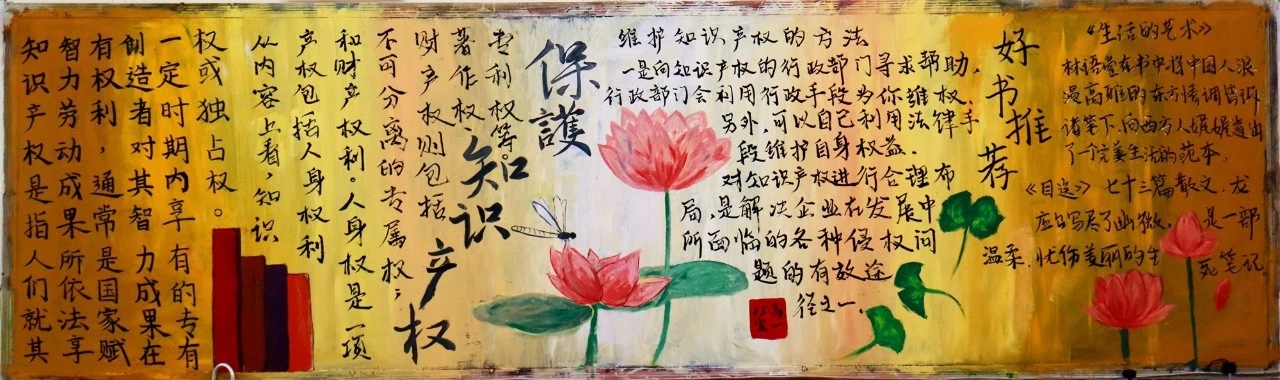 知识产权是指人们就其
智力劳动成果所依法享
有权利，通常是国家赋
创造者对其智力成果在
一定时期内享有的专有
权或独占权。
从内容上看，知识
产权包括人身权利
和财产权利。人身权是一项
不可分离的专属权；
财产权则包括
著作权、
专利权等。
保護
知识
产权
维护知识产权的方法
一是向知识产权的行政部门寻求帮助，
行政部门会利用行政手段为你维权。
另外，可以自己利用法律手
段维护自身权益.
对知识产权进行合理布
局，是解决企业在发展中
所面临的各种侵权问
题的有效途
径之一.
好书推荐
《生活的艺术》
林语堂在书中将中国人浪
漫高雅的东方情调告诉
诸笔下，向西方人娓娓道出
了一个完美生活的范本.
《目送》七十三篇散文.龙
应台写尽了幽微，是一部
温柔.忧伤美丽的生
死笔记